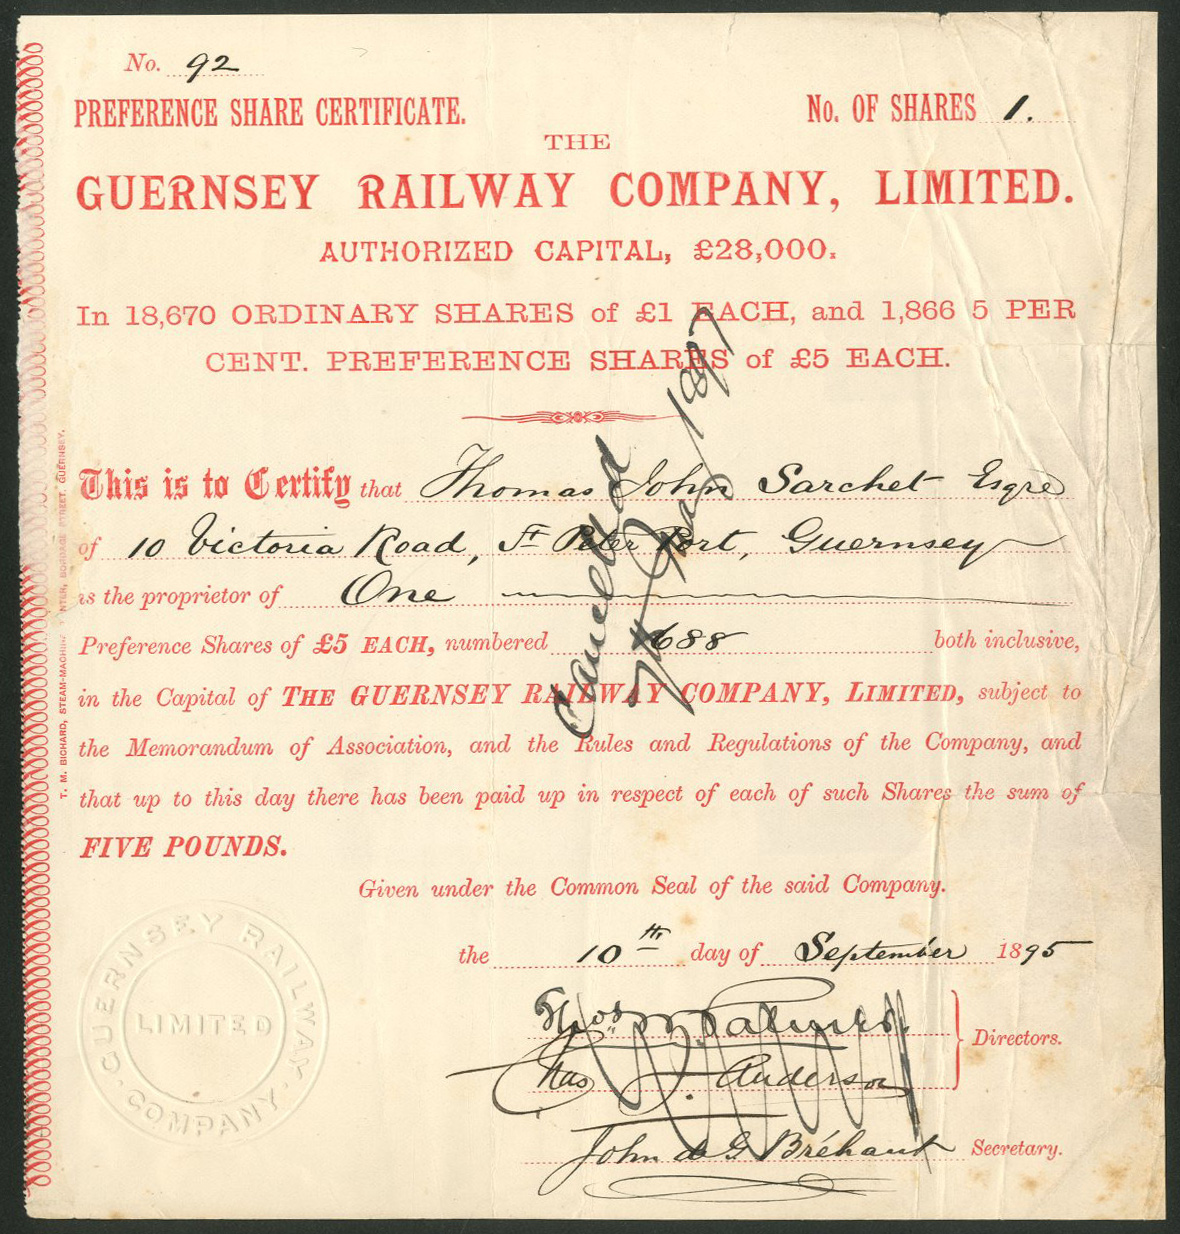 No. 92
PREFERENCE SHARE CERTIFICATE.
No. OF SHARES 1.
THE
GUERNSEY RAILWAY COMPANY, LIMITED.
AUTHORIZED CAPITAL, £28,000.
In 18,670 ORDINARY SHARES of £1 EACH, and 1,866 5 PER
CENT. PREFERENCE SHARES of £5 EACH.
This is to Certify that Thomas John Sarchet Esqre
of 10 Victoria Road, St Peter Port, Guernsey
is the proprietor of One
Preference Shares of £5 EACH, numbered 688 both inclusive,
in the Capital of THE GUERNSEY RAILWAY COMPANY, LIMITED, subject to
the Memorandum of Association, and the Rules and Regulations of the Company, and
that up to this day there has been paid up in respect of each of such Shares the sum of
FIVE POUNDS.
Given under the Common Seal of the said Company.
the 10th day of September 1895
Directors.
Chas J. Anderson
John de G Bréhaut Secretary.
Cancelled
1897
GUERNSEY RAILWAY COMPANY
LIMITED
T. M. BICHARD, STEAM-MACHINE BORDAGE STREET, GUERNSEY.